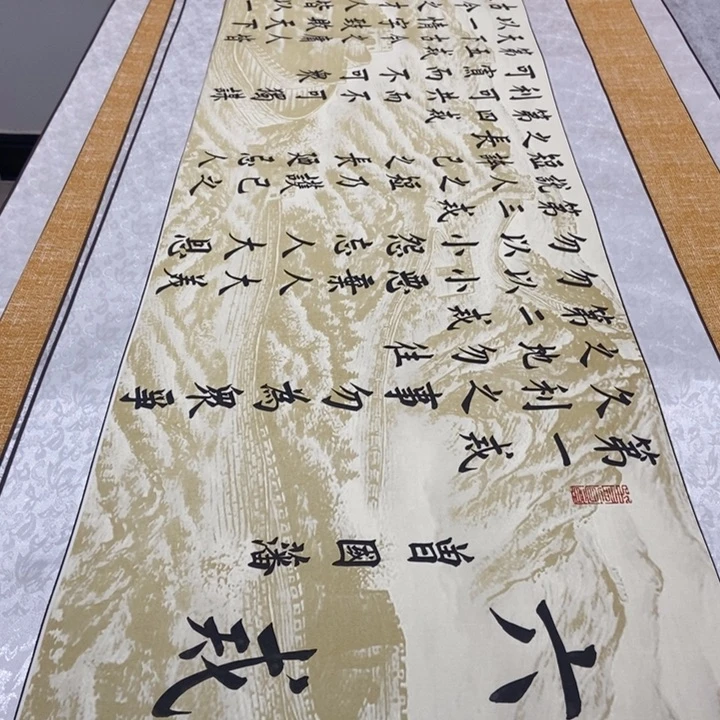 六戒
曾國藩
第一戒
久利之事勿為衆爭
之地勿往
第二戒
勿以小惡棄人大義
勿以小怨忘人大恩
第三戒
說人之短乃護己之
短己之長忌人
之長
第四戒
利可共而不可獨謀
可寡而不可衆
第五戒
天下古今之庸人皆
以一惰字致敗天下
古今之才人皆以一